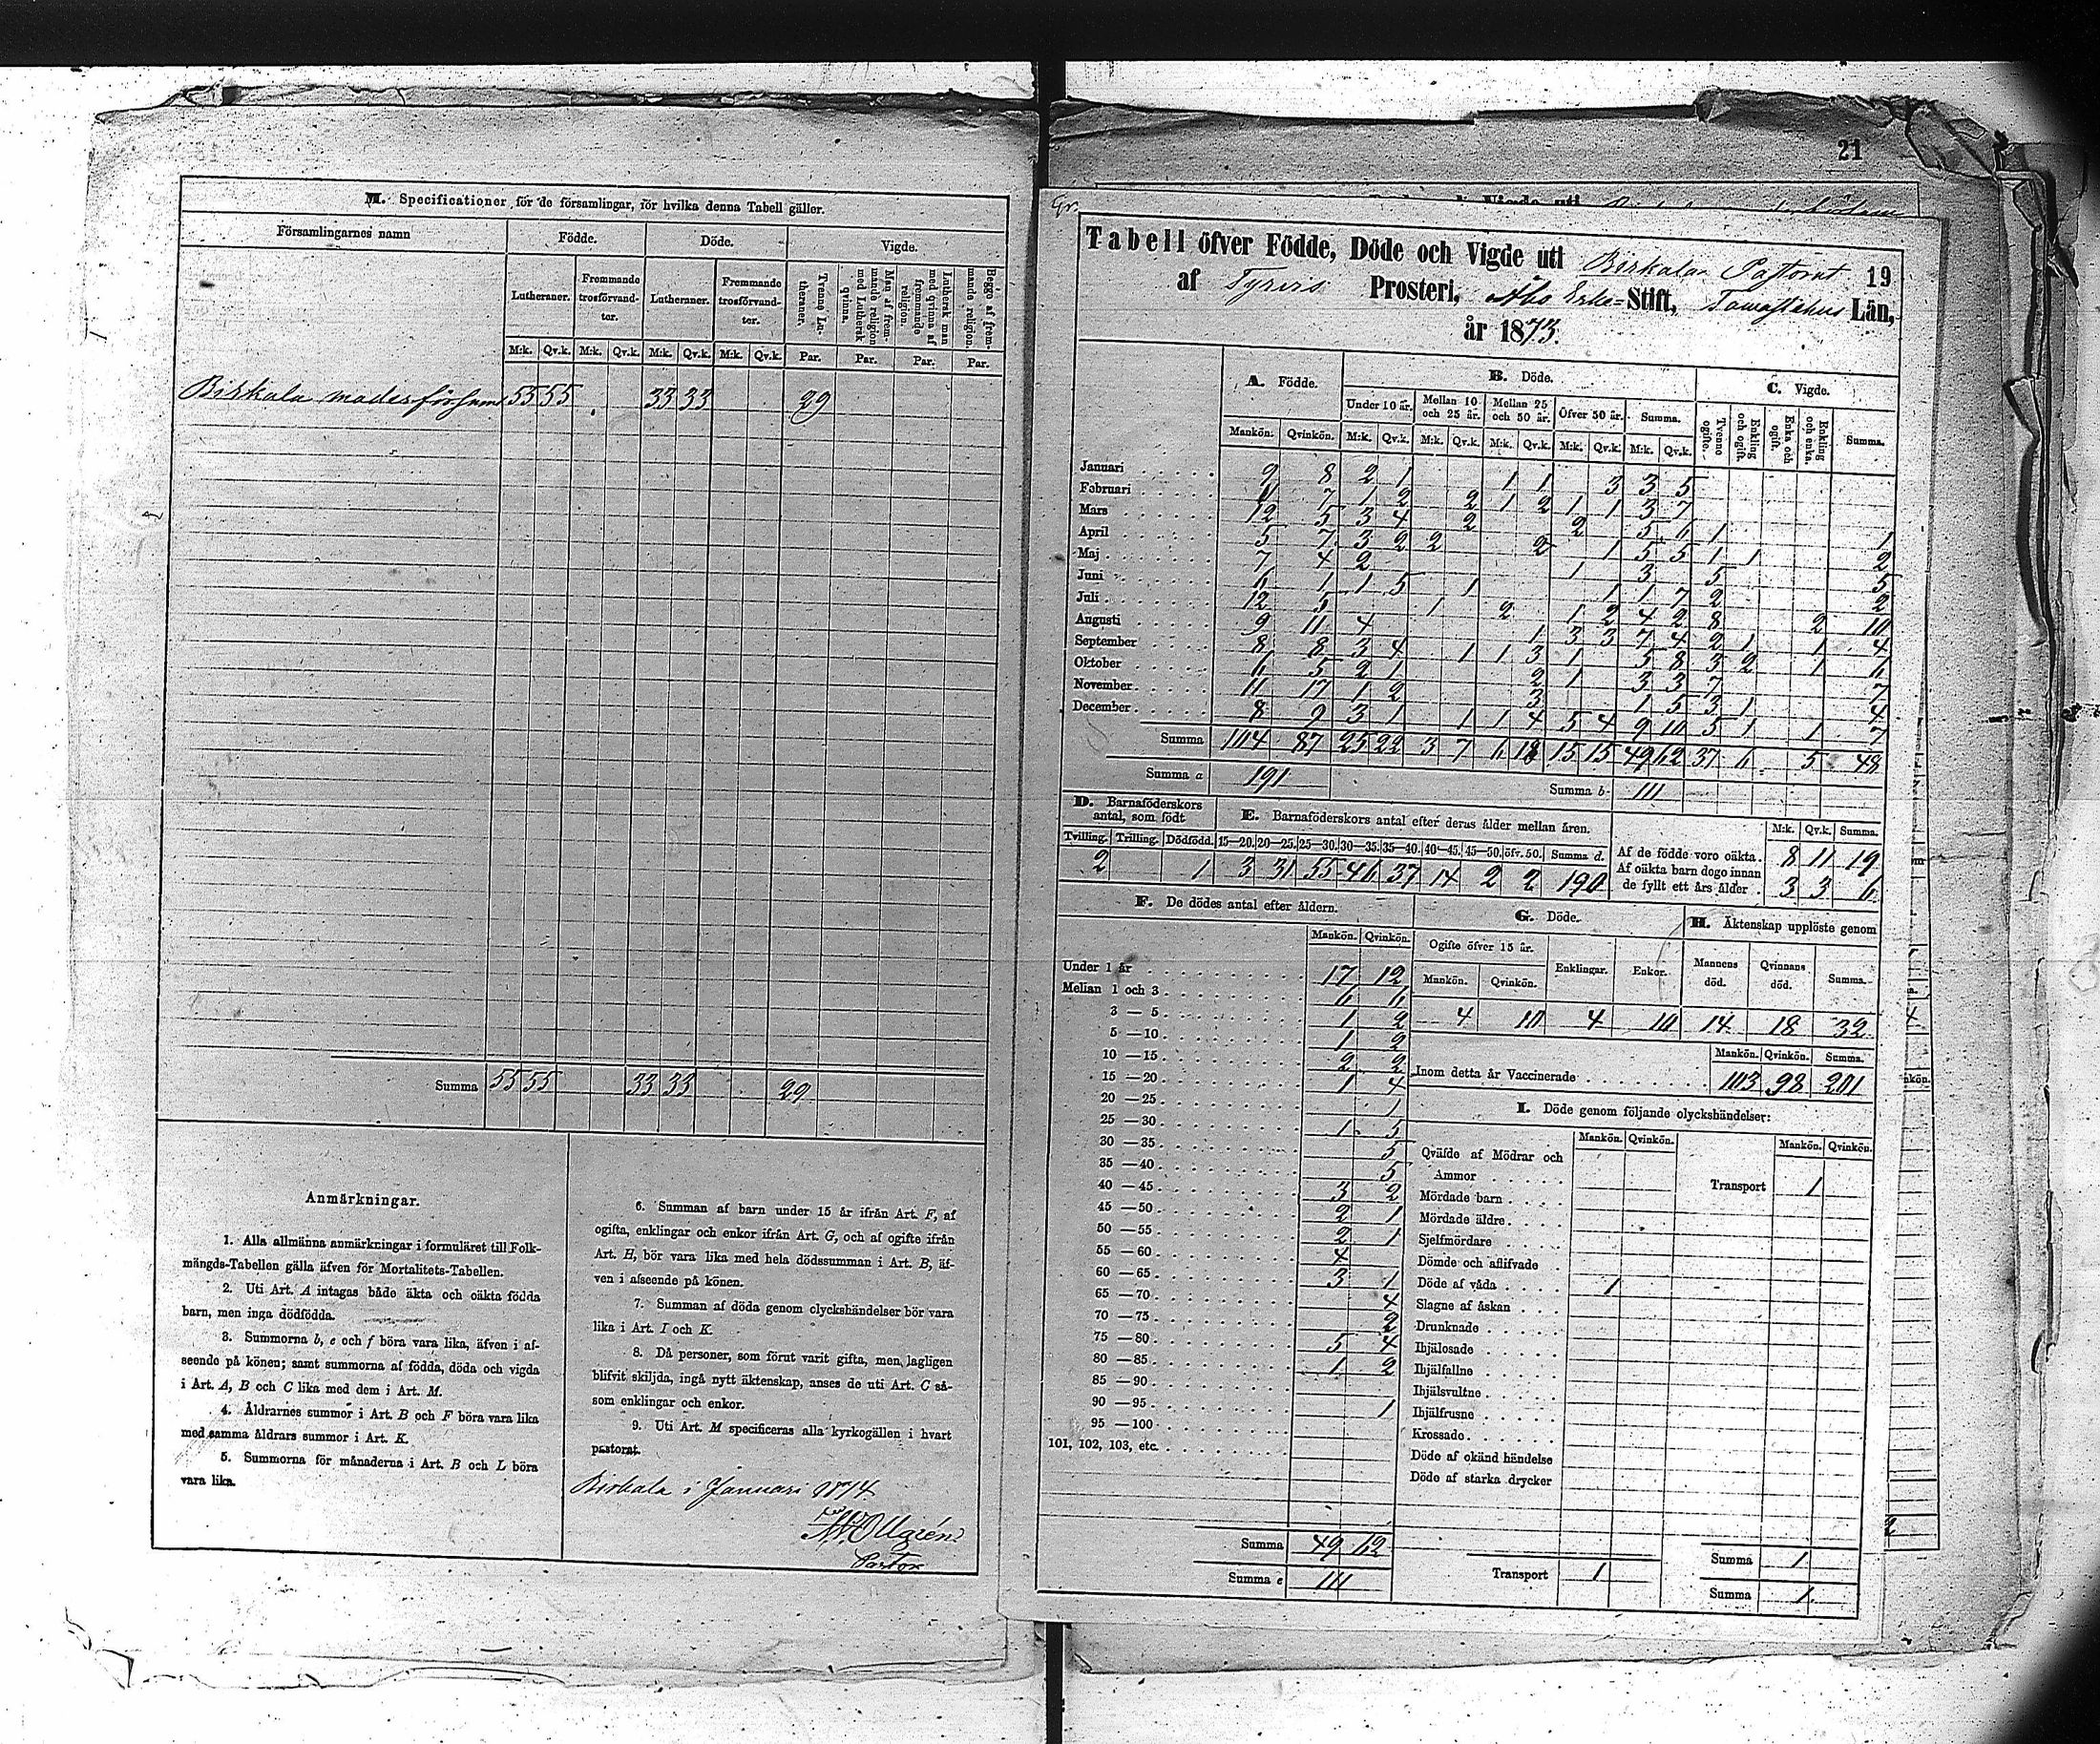 M. Specificationer för de församlingar, för hvilka denna Tabell gäller.
Församlingarnes namn Födde. Döde. Vigde.
Lutheraner. Fremmande trosförvandter. Lutheraner. Fremmande trosförvandter. Tvenne Lutheraner. Man af fremmande religion med Luthersk qvinna. Luthersk man med qvinna af fremmande religion. Begge af fremmande religion.
M:k. Qv.k. M:k. Qv.k. M:k. Qv.k. M:k. Qv.k. Par. Par. Par. Par.
Birkala moderförsaml 55 55 33 33 29
Summa 55 55 33 33 29
Anmärkningar.
1. Alla allmänna anmärkningar i formuläret till Folk-
mängds-Tabellen gälla äfven för Mortalitets-Tabellen.
2. Uti Art. A intagas både äkta och oäkta födda
barn, men inga dödfödda.
3. Summorna b, e och f böra vara lika, äfven i af-
seende på könen; samt summorna af födda, döda och vigda
i Art. A, B och C lika med dem i Art. M.
4. Åldrarnes summor i Art. B och F böra vara lika
med samma åldrars summor i Art. K.
5. Summorna för månaderna i Art. B och L böra
vara lika.
6. Summan af barn under 15 år ifrån Art. F, af
ogifta, enklingar och enkor ifrån Art. G, och af ogifte ifrån
Art. H, bör vara lika med hela dödssumman i Art. B, äf-
ven i afseende på könen.
7. Summan af döda genom olyckshändelser bör vara
lika i Art. I och K.
8. Då personer, som förut varit gifta, men lagligen
blifvit skiljda, ingå nytt äktenskap, anses de uti Art. C så-
som enklingar och enkor.
9. Uti Art. M specificeras alla kyrkogällen i hvart
pastorat.
Birkala i Januari 1874.
Pastor
21
Tabell öfver Födde, Döde och Vigde uti Birkala Pastorat 19
af Tyrvis Prosteri, Åbo Erke-Stift, Tavastehus Län,
år 1873.
A. Födde. B. Döde. C. Vigde.
Under 10 år. Mellan 10 och 25 år. Mellan 25 och 50 år. Öfver 50 år. Summa. Tvenne ogifte. Enkling och ogift. Enka och ogift. Enkling och enka. Summa.
Mankön. Qvinkön. M:k. Qv.k. M:k. Qv.k. M:k. Qv.k. M:k. Qv.k. M:k. Qv.k.
Januari 9 8 2 1 1 1 3 3 5
Februari 11 7 1 2 2 1 2 1 1 3 7
Mars 12 5 3 4 2 2 5 6 1 1
April 5 7 3 2 2 2 1 5 5 1 1 2
Maj 7 4 2 1 3 5 5
Juni 6 1 1 5 1 1 1 7 2 2
Juli 12 5 1 2 1 2 4 2 8 2 10
Augusti 9 11 4 1 3 3 7 4 2 1 1 4
September 8 8 3 4 1 1 3 1 5 8 3 2 1 6
Oktober 6 5 2 1 2 1 3 3 7 7
November 11 17 1 2 3 1 5 3 1 4
December 8 9 3 1 1 1 4 5 4 9 10 5 1 1 7
Summa 104 87 25 22 3 7 6 18 15 15 49 62 37 6 5 48
Summa a 191 Summa b 111
D. Barnaföderskors antal, som födt E. Barnaföderskors antal efter deras ålder mellan åren. M:k. Qv.k. Summa.
Tvilling. Trilling. Dödfödd. 15—20. 20—25. 25—30. 30—35. 35—40. 40—45. 45—50. öfv. 50. Summa d.
2 1 3 31 55 46 37 14 2 2 190
Af de födde voro oäkta. 8 11 19
Af oäkta barn dogo innan
de fyllt ett års ålder. 3 3 6
F. De dödes antal efter åldern.
Mankön. Qvinkön.
Under 1 år 17 12
Mellan 1 och 3 6 6
3 — 5 1 2
5 — 10 1 2
10 — 15 2 2
15 — 20 1 4
20 — 25 1
25 — 30 1 5
30 — 35 5
35 — 40 5
40 — 45 3 2
45 — 50 2 1
50 — 55 2 1
55 — 60 4
60 — 65 3 1
65 — 70 4
70 — 75 2
75 — 80 5 4
80 — 85 1 2
85 — 90
90 — 95 1
95 — 100
101, 102, 103, etc.
Summa 49 62
Summa e 111
G. Döde. H. Äktenskap upplöste genom
Ogifte öfver 15 år. Enklingar. Enkor. Mannens död. Qvinnans död. Summa.
Mankön. Qvinkön.
4 10 4 10 14 18 32
Mankön. Qvinkön. Summa.
Inom detta år Vaccinerade 103 98 201
I. Döde genom följande olyckshändelser:
Mankön. Qvinkön. Mankön. Qvinkön.
Qväfde af Mödrar och
Ammor
Transport 1
Mördade barn
Mördade äldre
Sjelfmördare
Dömde och aflifvade
Döde af våda 1
Slagne af åskan
Drunknade
Ihjälosade
Ihjälfallne
Ihjälsvultne
Ihjälfrusne
Krossade
Döde af okänd händelse
Döde af starka drycker
Transport 1
Summa 1
Summa 1